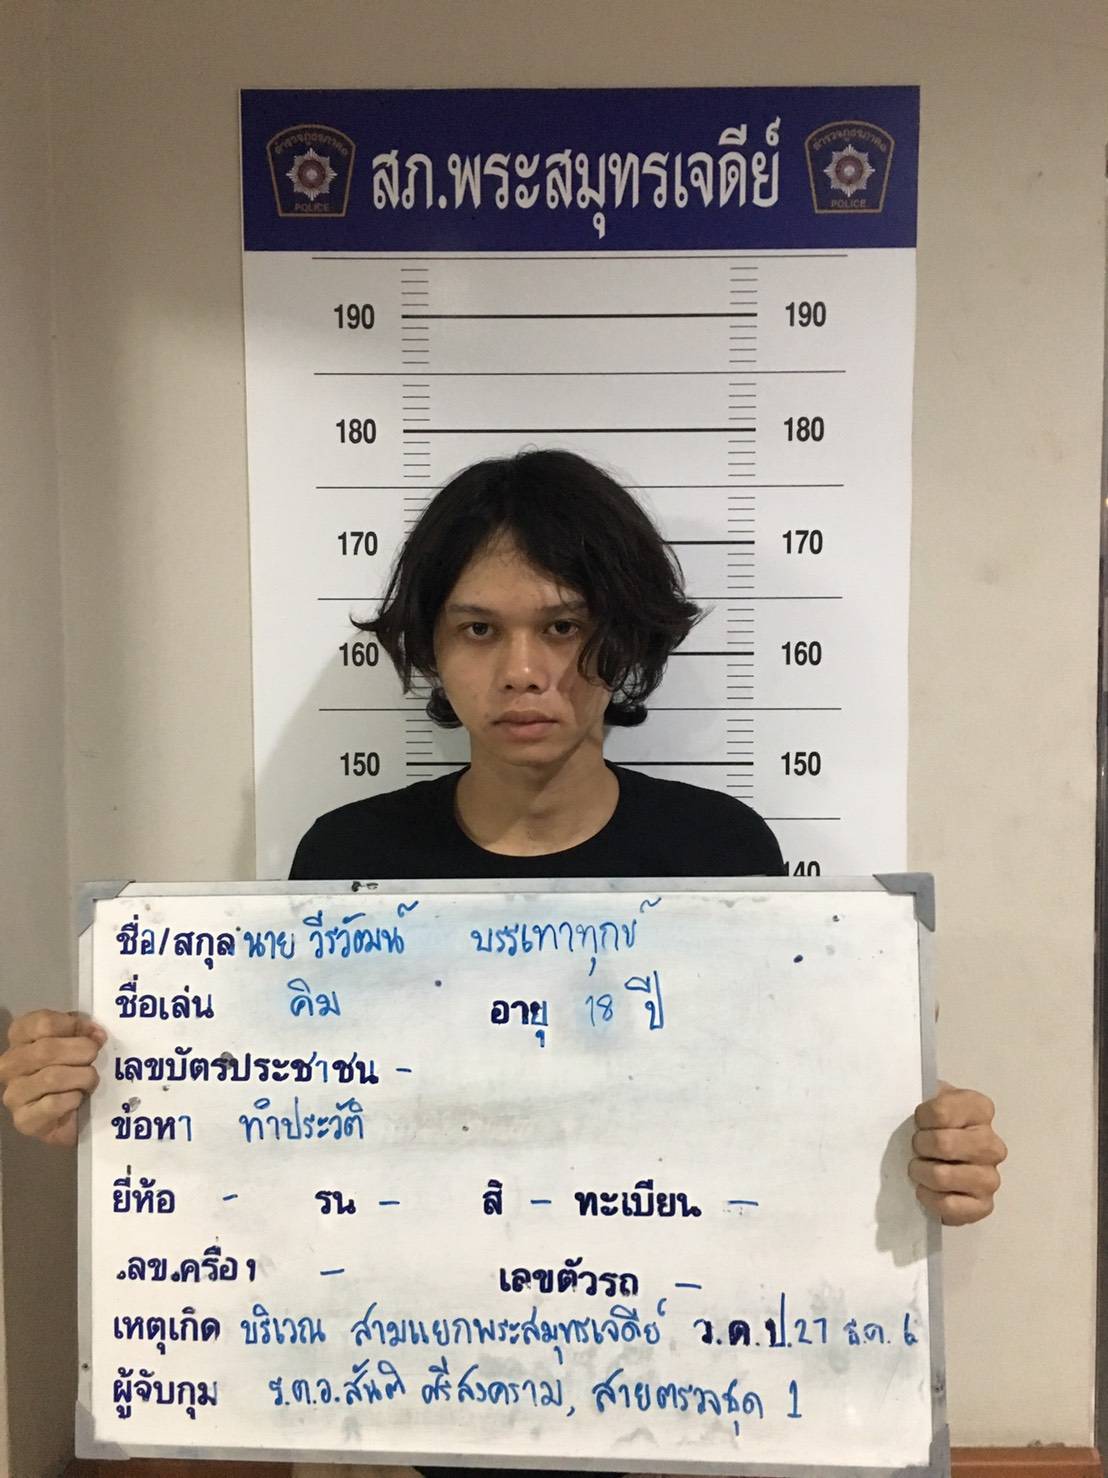 สภ.พระสมุทรเจดีย์
ตำรวจภูธรภาค๑
POLICE
ตำรวจภูธรภาค๑
POLICE
190 190
180 180
170 170
160 160
150 150
140
ชื่อ/สกุล นาย วีรวัฒน์ บรรเทาทุกข์
ชื่อเล่น คิม อายุ 18 ปี
เลขบัตรประชาชน -
ข้อหา ทำประวัติ
ยี่ห้อ - รน - สี - ทะเบียน -
.ลข.ครือง -
เลขตัวรถ -
เหตุเกิด บริเวณ สามแยกพระสมุทรเจดีย์ ว.ด.ป. 27 ธ.ค. 6
ผู้จับกุม ร.ต.อ.สันติ ศรีสงคราม, สายตรวจชุด 1